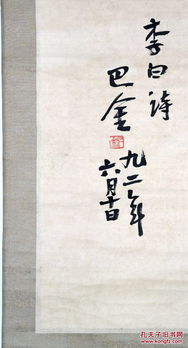 李白诗
巴金
九二年
六月十日
孔夫子旧书网